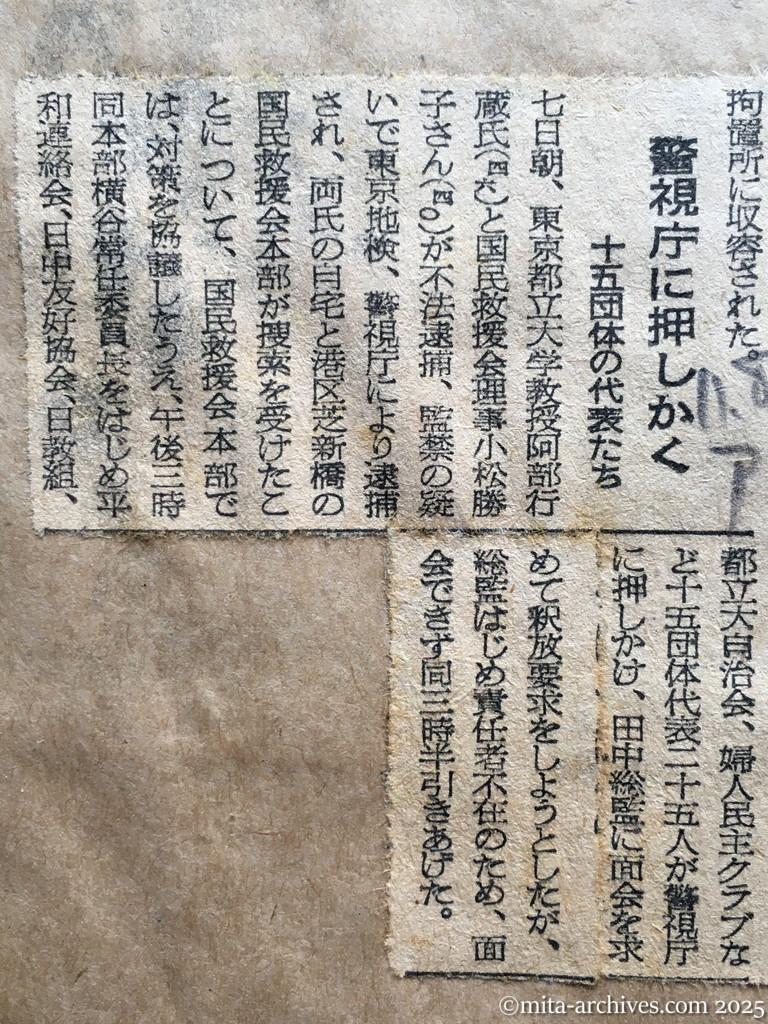 拘置所に収容された。
警視庁に押しかく
十五団体の代表たち
七日朝、東京都立大学教授阿部行
蔵氏(四六)と国民救援会理事小松勝
子さん(四〇)が不法逮捕、監禁の疑
いで東京地検、警視庁により逮捕
され、両氏の自宅と港区芝新橋の
国民救援会本部が捜索を受けたこ
とについて、国民救援会本部で
は、対策を協議したうえ、午後三時
同本部横谷常任委員長をはじめ平
和連絡会、日中友好協会、日教組、
都立大自治会、婦人民主クラブな
ど十五団体代表二十五人が警視庁
に押しかけ、田中総監に面会を求
めて釈放要求をしようとしたが、
総監はじめ責任者不在のため、面
会できず同三時半引きあげた。
11.8
ア
©mita-archives.com 2025